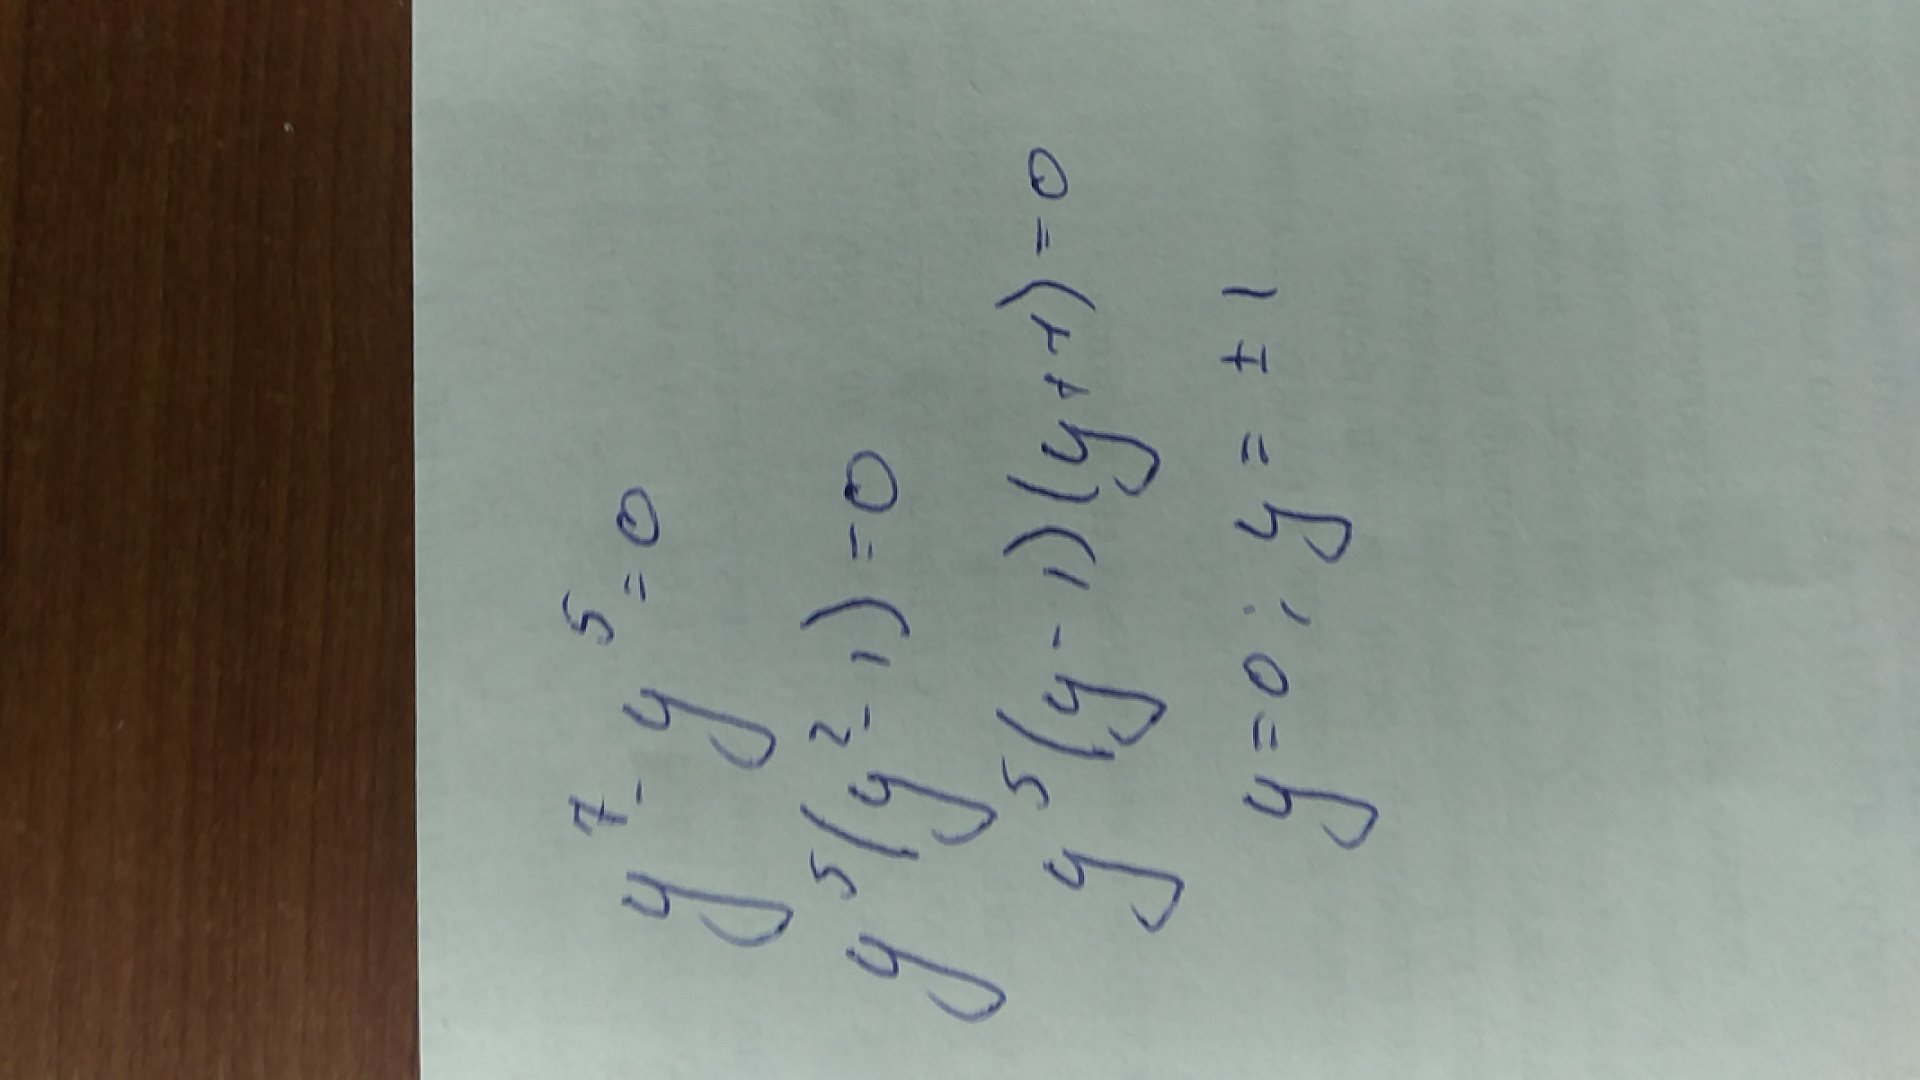 y⁷-y⁵=0
y⁵(y²-1)=0
y⁵(y-1)(y+1)=0
y=0; y=±1